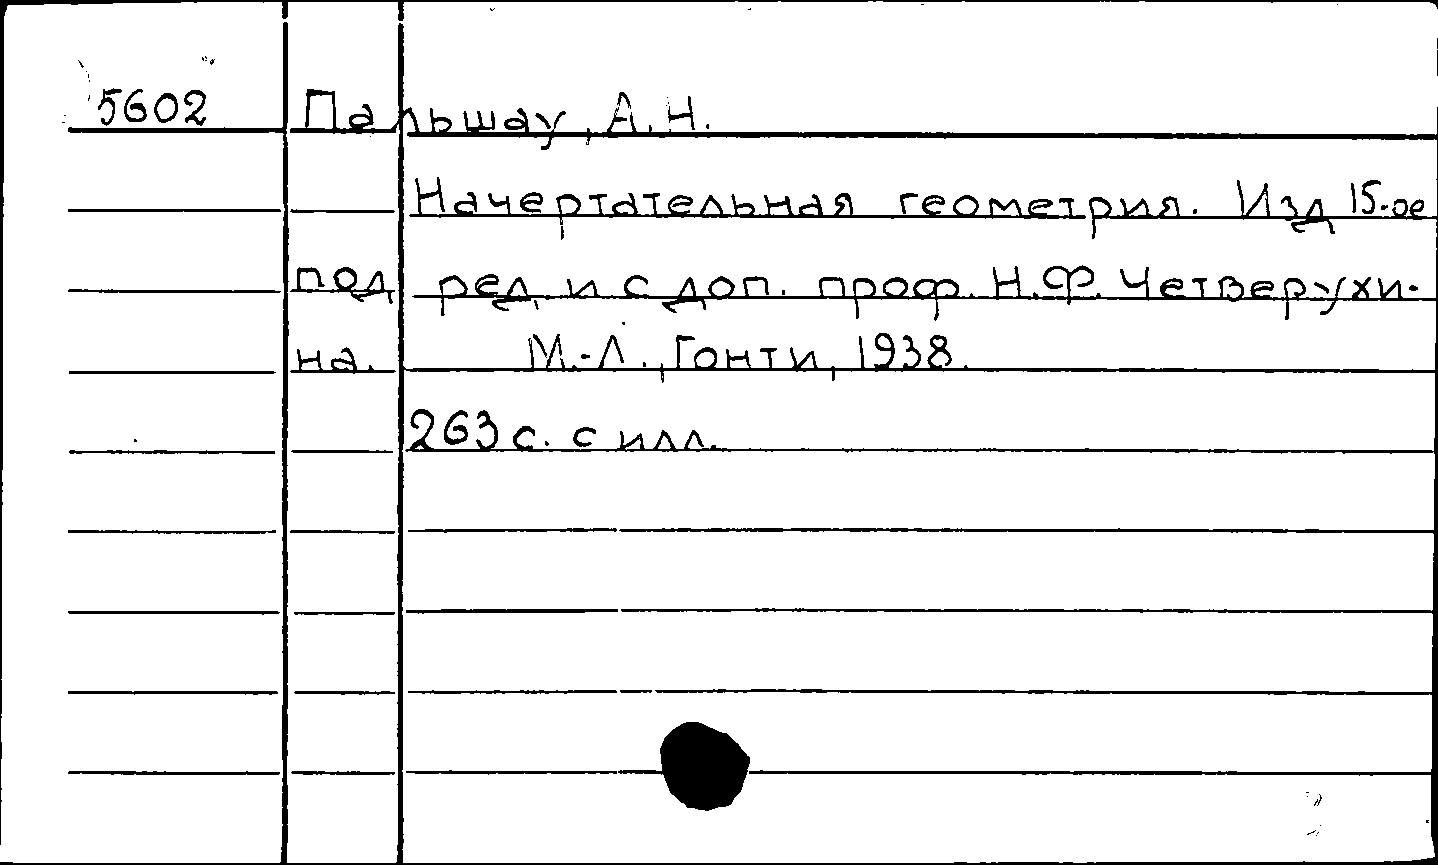 5602 Пальшау, А. Н.
Начертательная геометрия. Изд 15-ое
под ред. и с доп. проф. Н.Ф. Четверухи-
на. М.-Л., Гонти, 1938.
263 с. с илл.